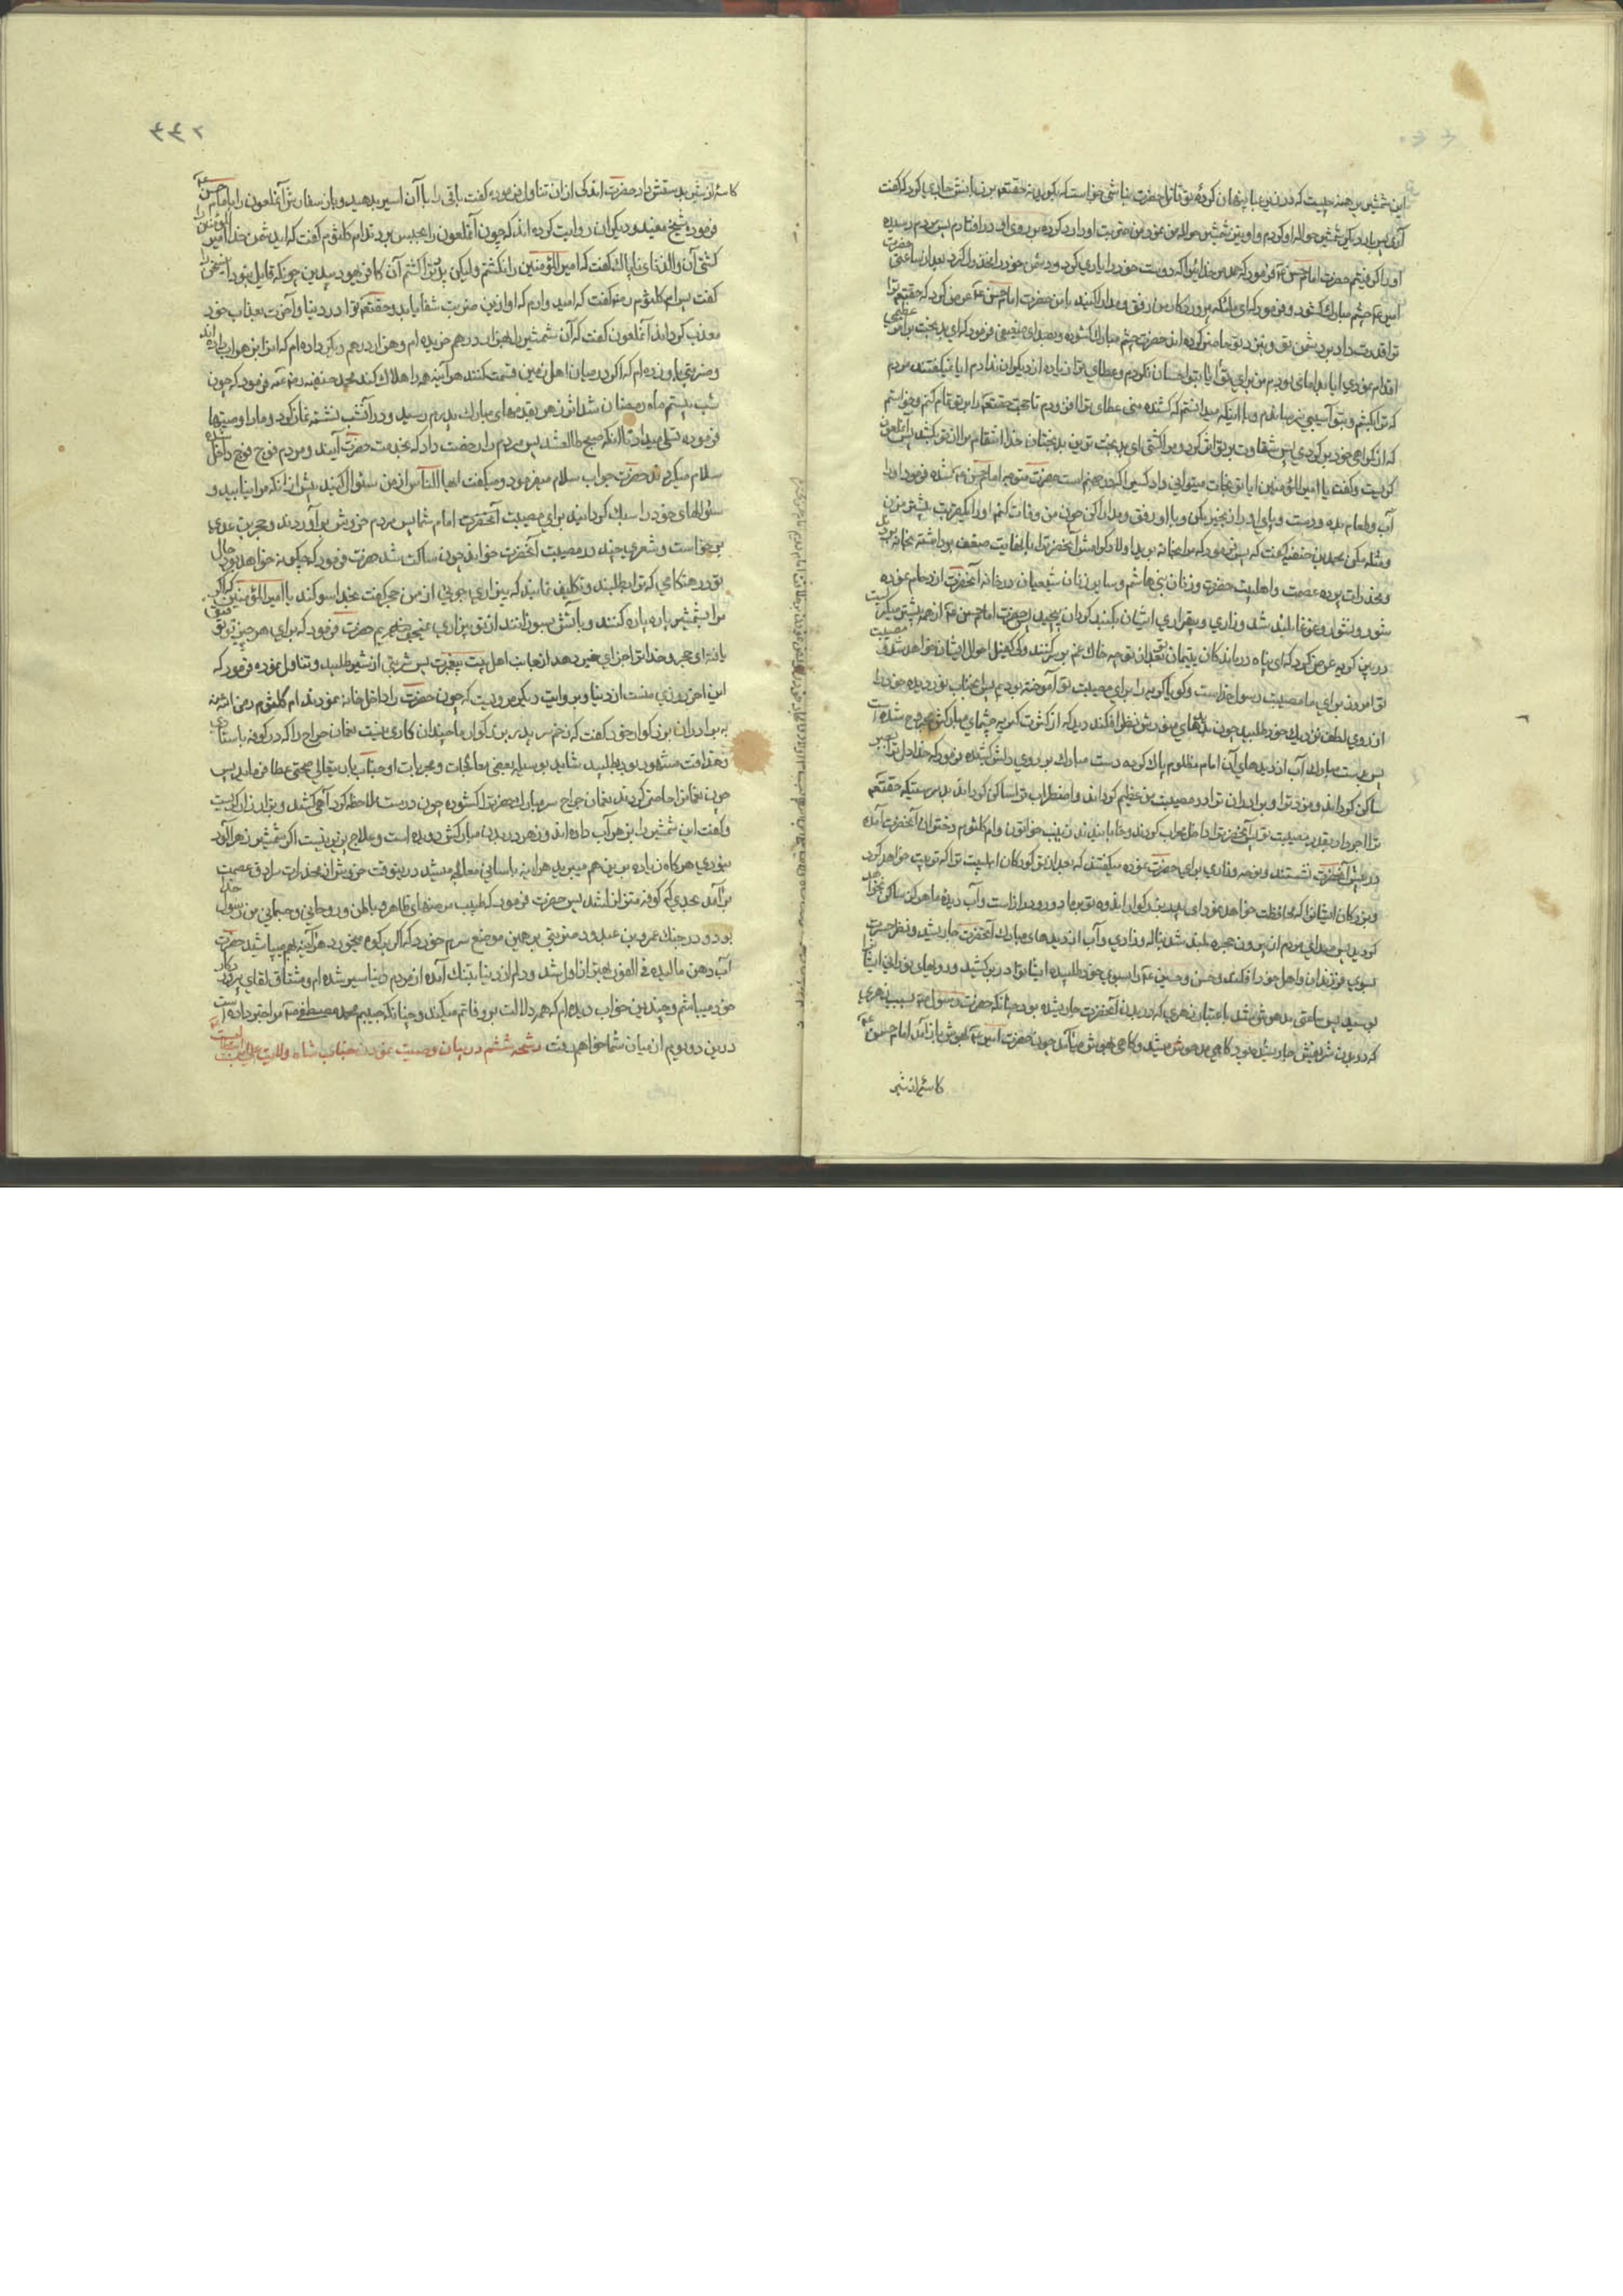 این شمشیر برهنه چیست که در زیر عبا پنهان کردهٔ تو قاتل حضرت نباشی خواست که بگوید نه حقتعم بر زبانش جاری کرد که گفت
آری پس
اورا گرفتم حضرت امام حسن ع فرمود که حمد مر خدایرا که دوست خود را یاری کرد و دشمن خود را مخذول کرد بعد از ساعتی حضرت
امیر ع چشم مبارک گشود و فرمود که ای ملائکه پروردگار من رفق و مدارا کنید با من حضرت امام حسن ع عرض کرد که حقتعم ترا
ترا قدرت داد بر دشمن تو و نزد تو حاضر کرده اند حضرت چشم مبارک گشوده و بصدای ضعیفی فرمود که ای بدبخت بر امر عظیمی
اقدام نمودی ایا بد امامی بودم من برای تو ایا بتو احسان نکردم و عطای ترا زیاده از دیگران ندادم ایا نمیگفتند مردم
که ترا بکشم و بتو آسیبی نرسانیدم و با اینکه میدانستم که کشنده منی عطای ترا افزودم تا حجت حقتعم را بر تو تمام کنم و خواستم
که از گمراهی خود برگردی پس شقاوت بر تو اثر کرد و مرا کشتی ای بدبخت ترین بدبختان خدا انتقام مرا از تو بکشد پس آنملعون
گریست و گفت یا امیر المؤمنین ایا تو نجات میتوانی داد کسی را که در جهنم است حضرت متوجه امام حسن ع شده فرمود او را
آب و طعام بده و دست و پای او را زنجیر مکن و با او رفق و مدارا کن چون من وفات کنم او را بیکضربت بکش
و مثله مکن محمد بن حنفیه گفت که پس فرمود که مرا بخانه برید اولاد گرامش آنحضرترا با نهایت ضعف برداشته بخانه بردند
و مخدرات پرده عصمت و اهلبیت حضرت و زنان بنی هاشم و سایر زنان شیعیان در خانه آنحضرت ازدحام نموده
شور و نشور و غوغا بلند شد و زاری و بیقراری ایشان بگنبد گردان پیچید حضرت امام حسن ع از همه بیشتر میگریست
در این گریه عرض کرد که ای پناه درماندگان یتیمان بعد از تو چه خاک غم بر سر کنند و که کفیل احوال ایشان خواهد شد مصیبت
تو امروز برای ما مصیبت رسول خداست و گویا گریه را برای مصیبت تو آموخته بودیم پس آنجناب نور دیده خود را
از روی لطف نزدیک خود طلبید چون نظر افکند دید که از کثرت گریه چشمهای مبارکش مجروح شده است
پس بدست مبارک آب از دیده های آن امام مظلوم پاک کرده دست مبارک بر روی دلش کشیده فرمود که خدا دل ترا بصبر
ساکن گرداند و مزد ترا و برادران ترا در مصیبت من عظیم گرداند و اضطراب ترا ساکن گرداند بدرستیکه حقتعم
ترا اجر داد بقدر مصیبت تو پس آنحضرترا داخل محراب کردند و خوابانیدند زینب خواتون و ام کلثوم دختران آنحضرت آمده
در پیش آنحضرت نشستند و نوحه و زاری برای حضرت نموده میگفتند که بعد از تو کودکان اهلبیت ترا که تربیت خواهد کرد
و بزرگان ایشانرا که محافظت خواهد نمود ای پدر بزرگوار اندوه تو بر ما دور و دراز است و آب دیده ما هرگز ساکن نخواهد
گردید پس صدای مردم از بیرون حجره بلند شد بناله و زاری و آب از دیده های مبارک آنحضرت جاری شد و نظر حسرت
بسوی فرزندان و اهل خود افکند و حسن و حسین ع را بسوی خود طلبیده ایشانرا در بر کشید و رویهای نورانی ایشان را
بوسید پس ساعتی مدهوش شد باعتبار زهری که در بدن آنحضرت جاری شده بود چنانکه حضرت رسول ص بسبب زهری
که در بدن شریفش جاری شده بود گاهی مدهوش میشد و گاهی بهوش میآمد چون حضرت امیر ع بهوش باز آمد امام حسن ع
کاسهٔ از شیر
۴۴۲
کاسهٔ از شیر بدستش داد حضرت اندکی از ان تناول فرموده گفت باقی را با آن اسیر بدهید و باز سفارش آنملعون را بامام حسن ع
فرمود شیخ مفید و دیگران روایت کرده اند که چون آنملعون را بحبس بردند ام کلثوم گفت که ای دشمن خدا امیر المؤمنین را
کشتی آن والد ناپاک گفت که امیر المؤمنین را نکشتم ولیکن پدر ترا کشتم
گفت پس ام کلثوم رض گفت که امیدوارم که او ازین ضربت شفا یابد و حقتعم ترا در دنیا و آخرت بعذاب خود
معذب گرداند آنملعون گفت که آن شمشیر را بهزار درهم خریده ام و هزار درهم دیگر داده ام که انرا بزهر آب داده اند
و ضربتی باو زده ام که اگر در میان اهل زمین قسمت کنند هر آینه همه را هلاک کند محمد حنفیه رض فرمود که چون
شب بیستم ماه رمضان شد اثر زهر بقدمهای مبارک پدرم رسید و در آنشب نشسته نماز کرد و مارا وصیتها
فرموده تسلی میداد تا آنکه صبح طالع شد پس مردم را رخصت داد که بخدمت حضرت آیند و مردم فوج فوج داخل شده
سلام میکردند حضرت جواب سلام میفرمود و میگفت ایها الناس از من سئوال کنید پیش از انکه مرا نیابید و
سئوالهای خود را سبک گردانید برای مصیبت آنحضرت امام شما پس مردم خروش بر آوردند و حجر بن عدی
برخواست و شعری چند در مصیبت آنحضرت خواند چون ساکت شد حضرت فرمود که چگونه خواهد بود حال
تو در هنگامی که ترا بطلبند و تکلیف نمایند که بیزاری جوئی از من حجر گفت بخدا سوگند یا امیر المؤمنین که اگر
مرا بشمشیر پاره پاره کنند و بآتش بسوزانند از تو بیزاری نمیجویم حضرت فرمود که برای هر چیز توفیق
یافتهٔ ای حجر و خدا ترا جزای خیر دهد از جانب اهلبیت پیغمبرت پس شربتی از شیر طلبید و تناول نموده فرمود که
این آخر روزی منست از دنیا و بروایت دیگر مرویست که چون حضرت را داخل خانه نمودند ام کلثوم رض
به برادران بزرگوار خود گفت که زخم سر پدر بزرگوار ما چندان کاری نیست نعمان جراح را که در کوفه باستادی
و حذاقت مشهور بود بطلبید شاید بوسیله بعضی معالجات و مجربات او جناب باریتعالی صحتی عطا فرماید پس
چون نعمانرا حاضر کردند نعمان جراح سر مبارک حضرترا گشوده چون درست ملاحظه کرد آهی کشید و بزاری گریست
و گفت این شمشیر را بزهر آب داده اند و زهر در بدن مبارکش دویده است و علاج پذیر نیست اگر شمشیر زهر آلود
نبودی هر گاه زیاده بر این هم میبرید هر اینه باسانی معالجه میشد درینوقت خروش از مخدرات سرادق عصمت
بر آمد بحدی که کوفه متزلزل شد پس حضرت فرمود که طبیب مرضهای ظاهر و باطن و روحانی و جسمانی من رسول خدا
بود و در جنگ عمرو بن عبدود ضربتی بر همین موضع سرم خورد که اگر بکوه میخورد هر آینه از هم میپاشید حضرت
آب دهن مالیده فی الفور بهتر از اول شد و دلم از دنیا بتنگ آمده از مردم دنیا سیر شده ام و مشتاق لقای پروردگار
خود میباشم و چندین خواب دیده ام که همه دلالت بر وفاتم میکند و چنانکه حبیبم محمد مصطفی ص مرا خبر داده است
درین دو روزم از میان شما خواهم رفت رشحه ششم در بیان وصیت نمودن جناب شاه ولایت